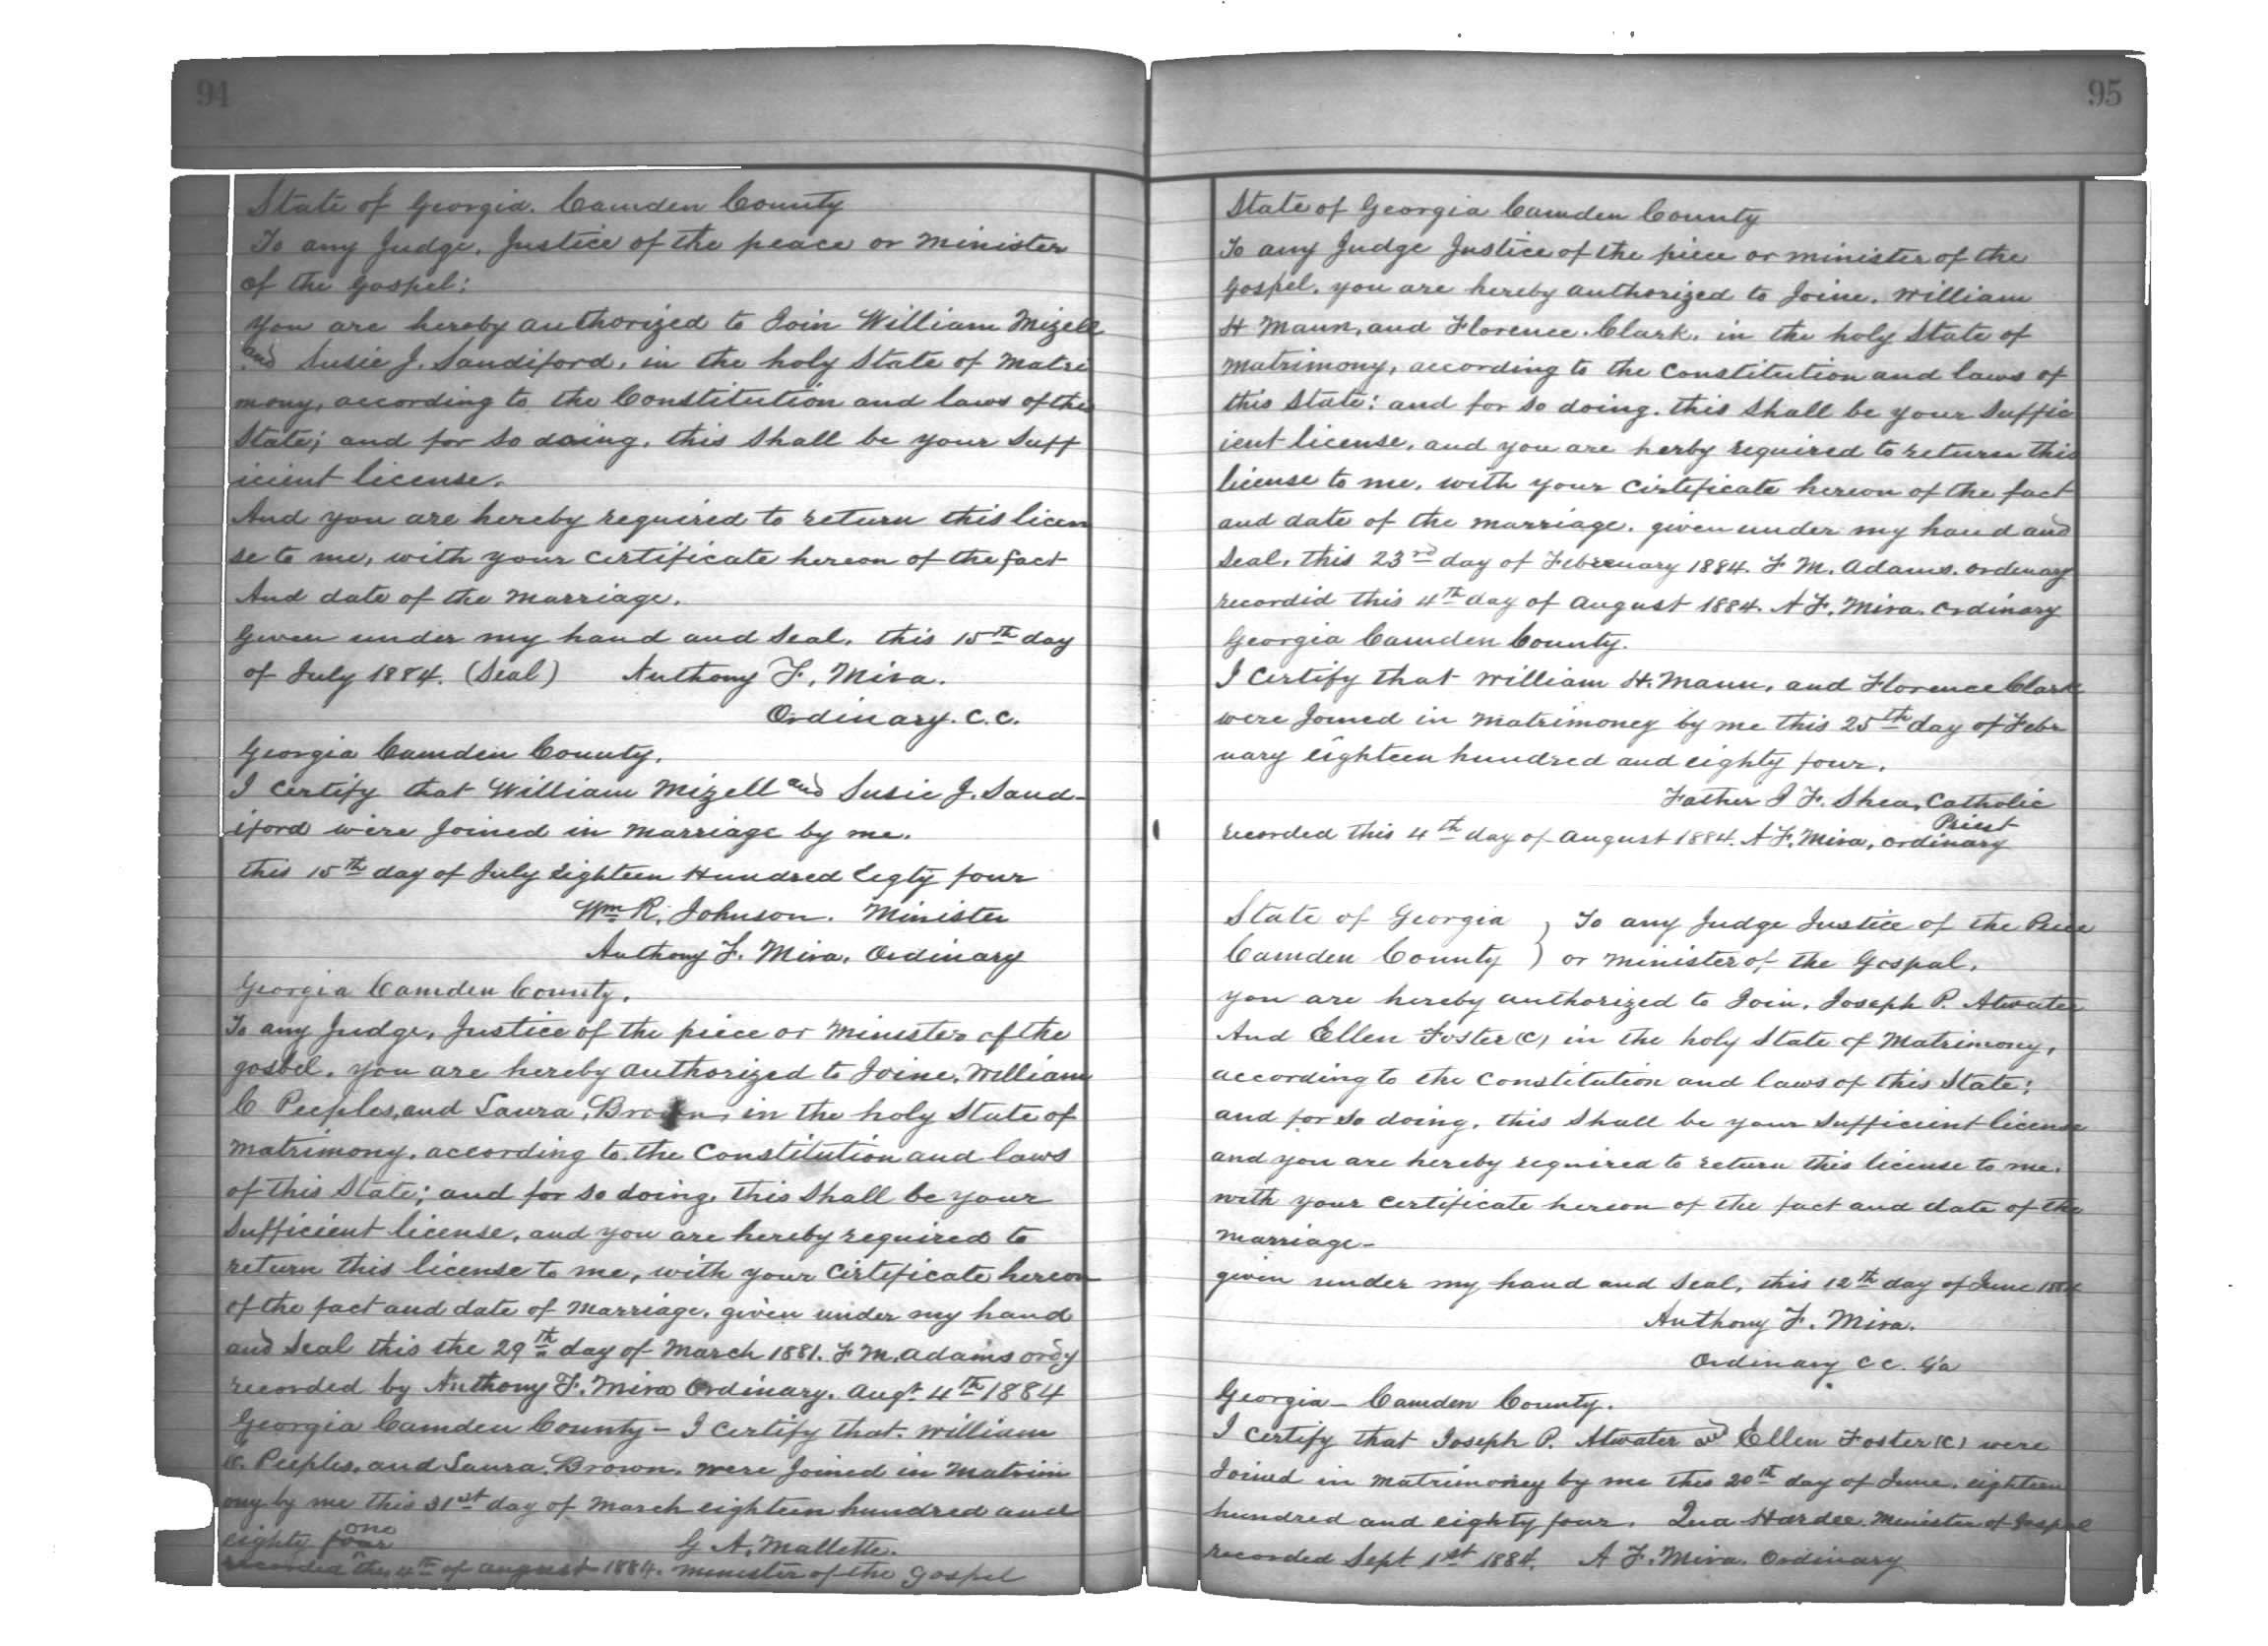 94
State of Georgia. Camden County
To any Judge, Justice of the peace or Minister
of the Gospel:
You are hereby authorized to Join William Mizell
and Susie J. Sandiford, in the holy State of Matri
mony, according to the Constitution and laws of this
State; and for so doing, this shall be your Suff
icient license.
And you are hereby required to return this licen
se to me, with your certificate hereon of the fact
And date of the Marriage.
Given under my hand and seal, this 15th day
of July 1884. (Seal) Anthony F. Mira.
Ordinary. C.C.
Georgia Camden County.
I certify that William Mizell and Susie J. Sand-
iford were joined in marriage by me.
this 15th day of July Eighteen Hundred Eegty four
Wm R. Johnson. Minister
Anthony F. Mira, Ordinary
Georgia Camden County.
To any Judge, Justice of the piece or Minister of the
gosbel, you are hereby authorized to Joine, William
C Peeples, and Laura, Brown, in the holy State of
Matrimony, according to the Constitution and laws
of this State; and for so doing, this shall be your
Sufficient license, and you are hereby required to
return this license to me, with your cirteficate hereon
of the fact and date of Marriage, given under my hand
and Seal this the 29th day of March 1881. F M. Adams ordy
recorded by Anthony F. Mira Ordinary. Augt 4th 1884
Georgia Camden County - I certify that. William
C. Peeples, and Laura, Brown, were Joined in Matrim
ony by me this 31st day of March eighteen hundred and
eighty four one G A. Mallette.
recorded the 4th of august 1884. minester of the Gospel
95
State of Georgia Camden County
To any Judge Justice of the piece or minister of the
Gospel, you are hereby authorized to Joine, William
H Mann, and Florence. Clark, in the holy State of
Matrimony, according to the Constitution and laws of
this State; and for so doing, this shall be your suffic
ient license, and you are herby required to return this
license to me, with your cirteficate hereon of the fact
and date of the marriage. given under my hand and
Seal, this 23rd day of February 1884. F M. Adams. ordenary
recordid this 4th day of August 1884. A F. Mira. Ordinary
Georgia Camden County.
I certify that William H. Mann, and Florence Clark
were Joined in Matrimoney by me this 25th day of Febr
uary eighteen hundred and eighty four.
Father J F. Shea, Catholic
Priest
recorded this 4th day of August 1884. A F. Mira, ordinary
State of Georgia } To any Judge Justice of the Piece
Camden County } or minister of the Gospal,
you are hereby authorized to Join, Joseph P. Atwater
And Ellen Foster (C) in the holy State of Matrimony,
according to the Constitution and laws of this State;
and for so doing, this shall be your sufficient license
and you are hereby required to return this license to me.
with your certificate hereon of the fact and date of the
marriage-
given under my hand and seal, this 12th day of June 1884
Anthony F. Mira.
Ordinary C C. Ga
Georgia - Camden County.
I certify that Joseph P. Atwater and Ellen Foster (C) were
Joined in matrimoney by me this 20th day of June, eighteen
hundred and eighty four. Qua Hardee. Minister of Gospel
recorded Sept 1st 1884. A F. Mira. Ordinary